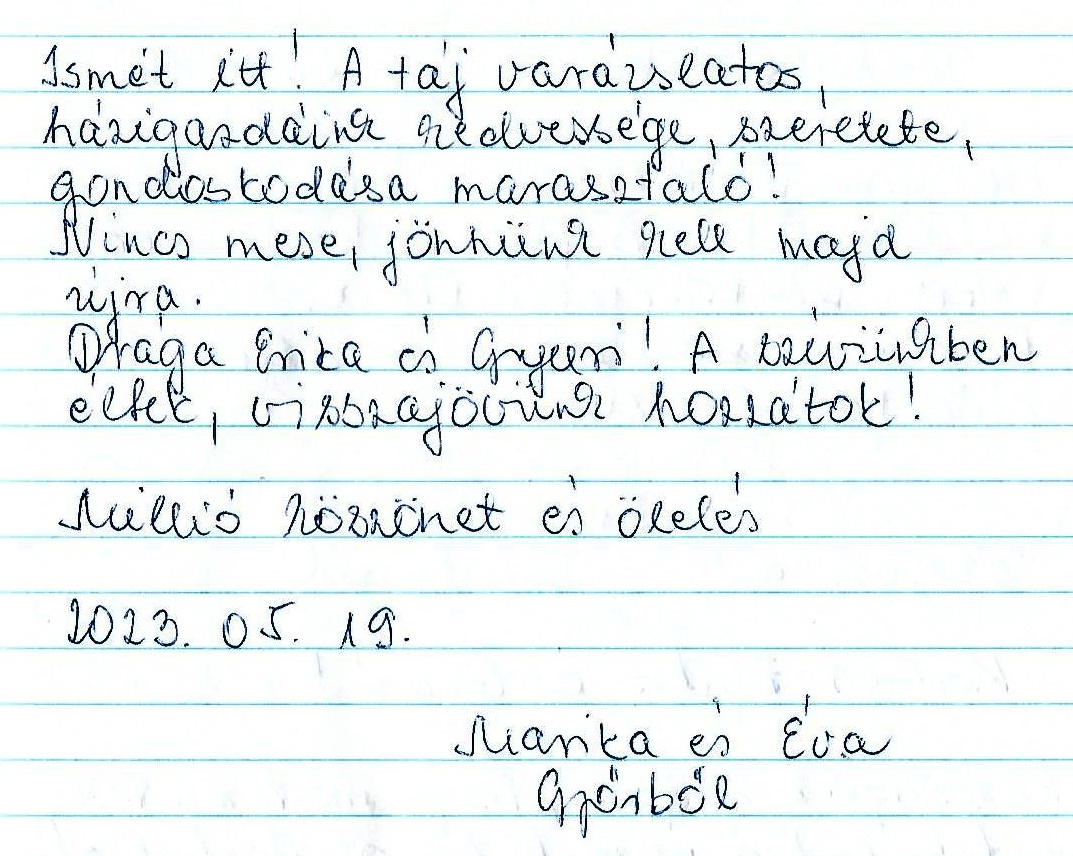 Ismét itt! A táj varázslatos,
házigazdáink kedvessége, szeretete,
gondoskodása marasztaló!
Nincs mese, jönnünk kell majd
újra.
Drága Erika és Gyuri! A szívünkben
éltek, visszajövünk hozzátok!
Millió köszönet és ölelés
2023. 05. 19.
Marika és Éva
Győrből